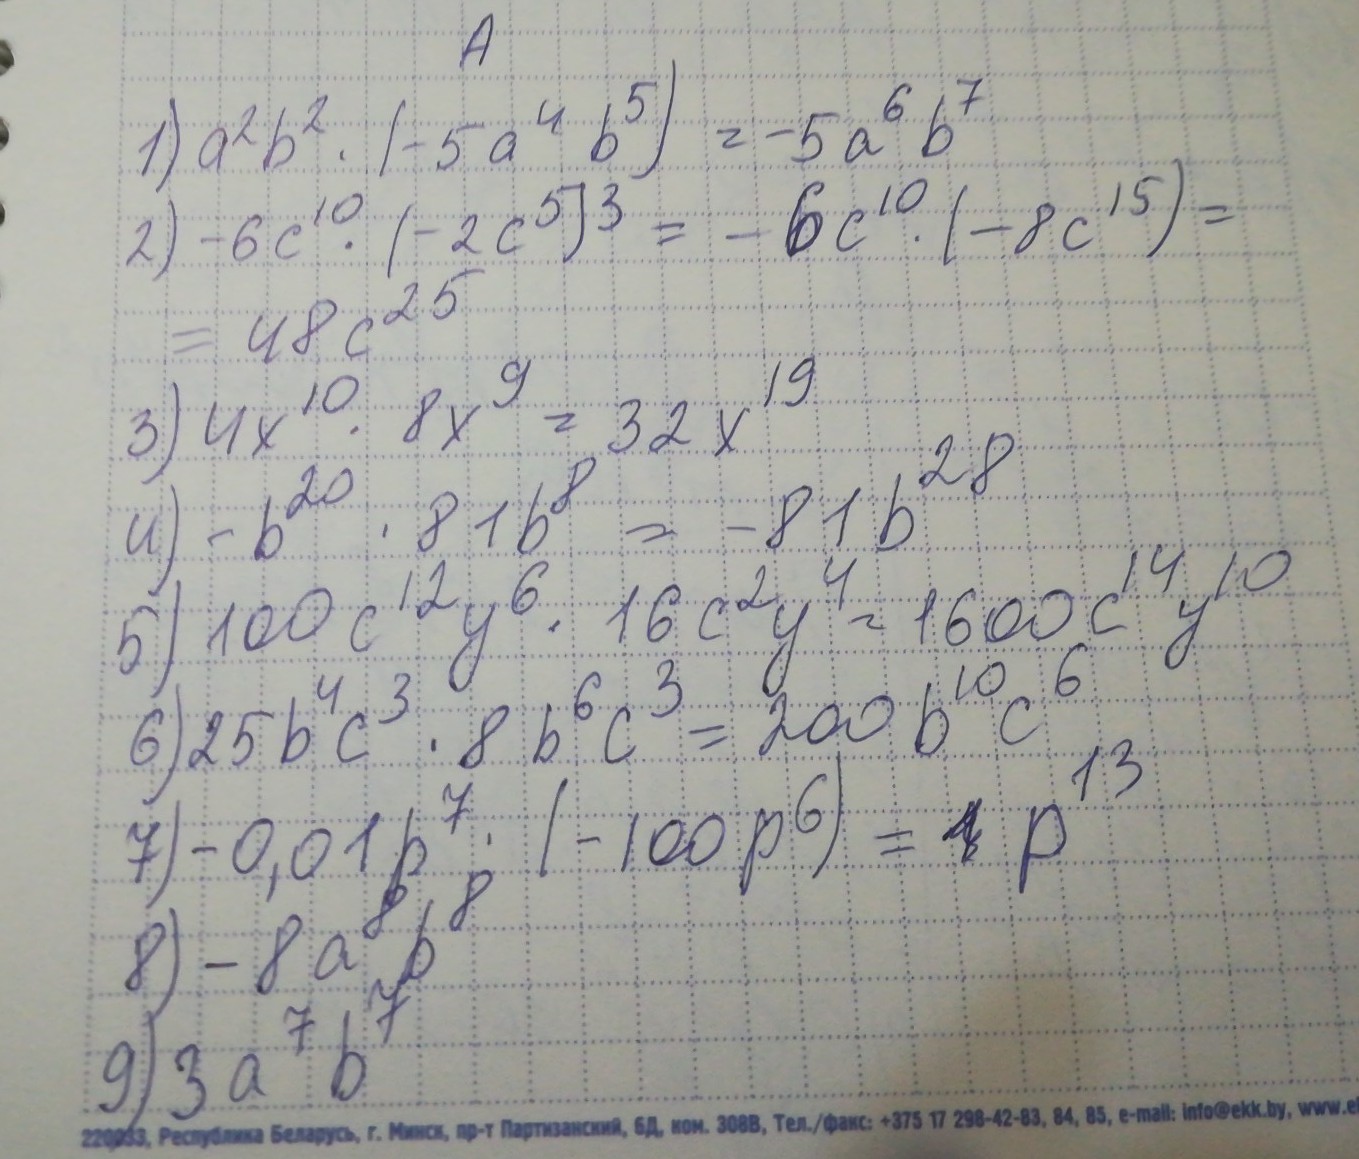 А
1) a²b² · (-5a⁴b⁵) = -5a⁶b⁷
2) -6c¹⁰ · (-2c⁵)³ = -6c¹⁰ · (-8c¹⁵) =
= 48c²⁵
3) 4x¹⁰ · 8x⁹ = 32x¹⁹
4) -b²⁰ · 81b⁸ = -81b²⁸
5) 100c¹²y⁶ · 16c²y⁴ = 1600c¹⁴y¹⁰
6) 25b⁴c³ · 8b⁶c³ = 200b¹⁰c⁶
7) -0,01p⁷ · (-100p⁶) = 1p¹³
8) -8a⁸b⁸
9) 3a⁷b⁷
220033, Республика Беларусь, г. Минск, пр-т Партизанский, 6Д, ком. 308В, Тел./факс: +375 17 298-42-83, 84, 85, e-mail: info@ekk.by,